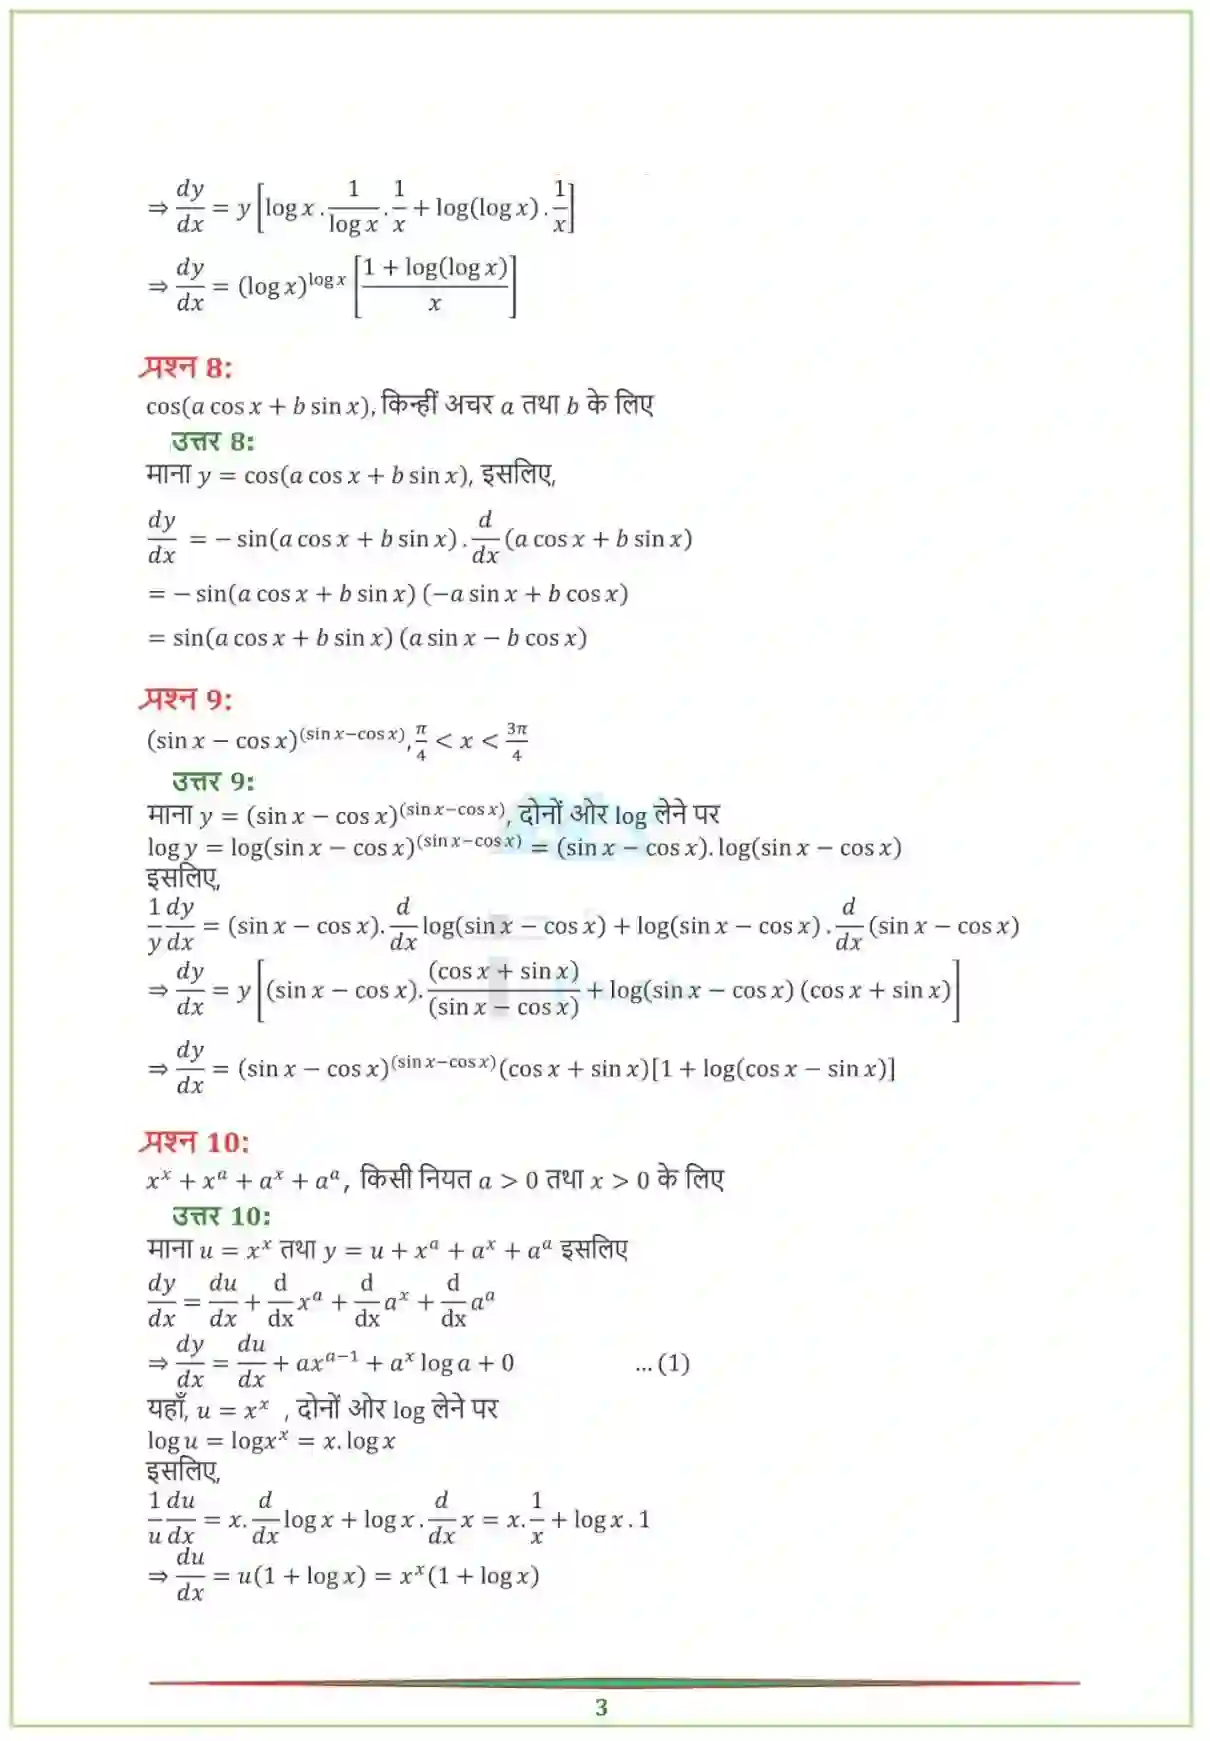 ⇒ dy/dx = y [log x . 1/log x . 1/x + log(log x) . 1/x]
⇒ dy/dx = (log x)^(log x) [(1 + log(log x))/x]
प्रश्न 8:
cos(a cos x + b sin x), किन्हीं अचर a तथा b के लिए
उत्तर 8:
माना y = cos(a cos x + b sin x), इसलिए,
dy/dx = − sin(a cos x + b sin x) . d/dx (a cos x + b sin x)
= − sin(a cos x + b sin x) (−a sin x + b cos x)
= sin(a cos x + b sin x) (a sin x − b cos x)
प्रश्न 9:
(sin x − cos x)^(sin x−cos x), π/4 < x < 3π/4
उत्तर 9:
माना y = (sin x − cos x)^(sin x−cos x), दोनों ओर log लेने पर
log y = log(sin x − cos x)^(sin x−cos x) = (sin x − cos x). log(sin x − cos x)
इसलिए,
1/y dy/dx = (sin x − cos x). d/dx log(sin x − cos x) + log(sin x − cos x) . d/dx (sin x − cos x)
⇒ dy/dx = y [(sin x − cos x). (cos x + sin x)/(sin x − cos x) + log(sin x − cos x) (cos x + sin x)]
⇒ dy/dx = (sin x − cos x)^(sin x−cos x) (cos x + sin x)[1 + log(cos x − sin x)]
प्रश्न 10:
x^x + x^a + a^x + a^a, किसी नियत a > 0 तथा x > 0 के लिए
उत्तर 10:
माना u = x^x तथा y = u + x^a + a^x + a^a इसलिए
dy/dx = du/dx + d/dx x^a + d/dx a^x + d/dx a^a
⇒ dy/dx = du/dx + ax^(a−1) + a^x log a + 0 … (1)
यहाँ, u = x^x , दोनों ओर log लेने पर
log u = logx^x = x. log x
इसलिए,
1/u du/dx = x. d/dx log x + log x . d/dx x = x. 1/x + log x . 1
⇒ du/dx = u(1 + log x) = x^x(1 + log x)
3